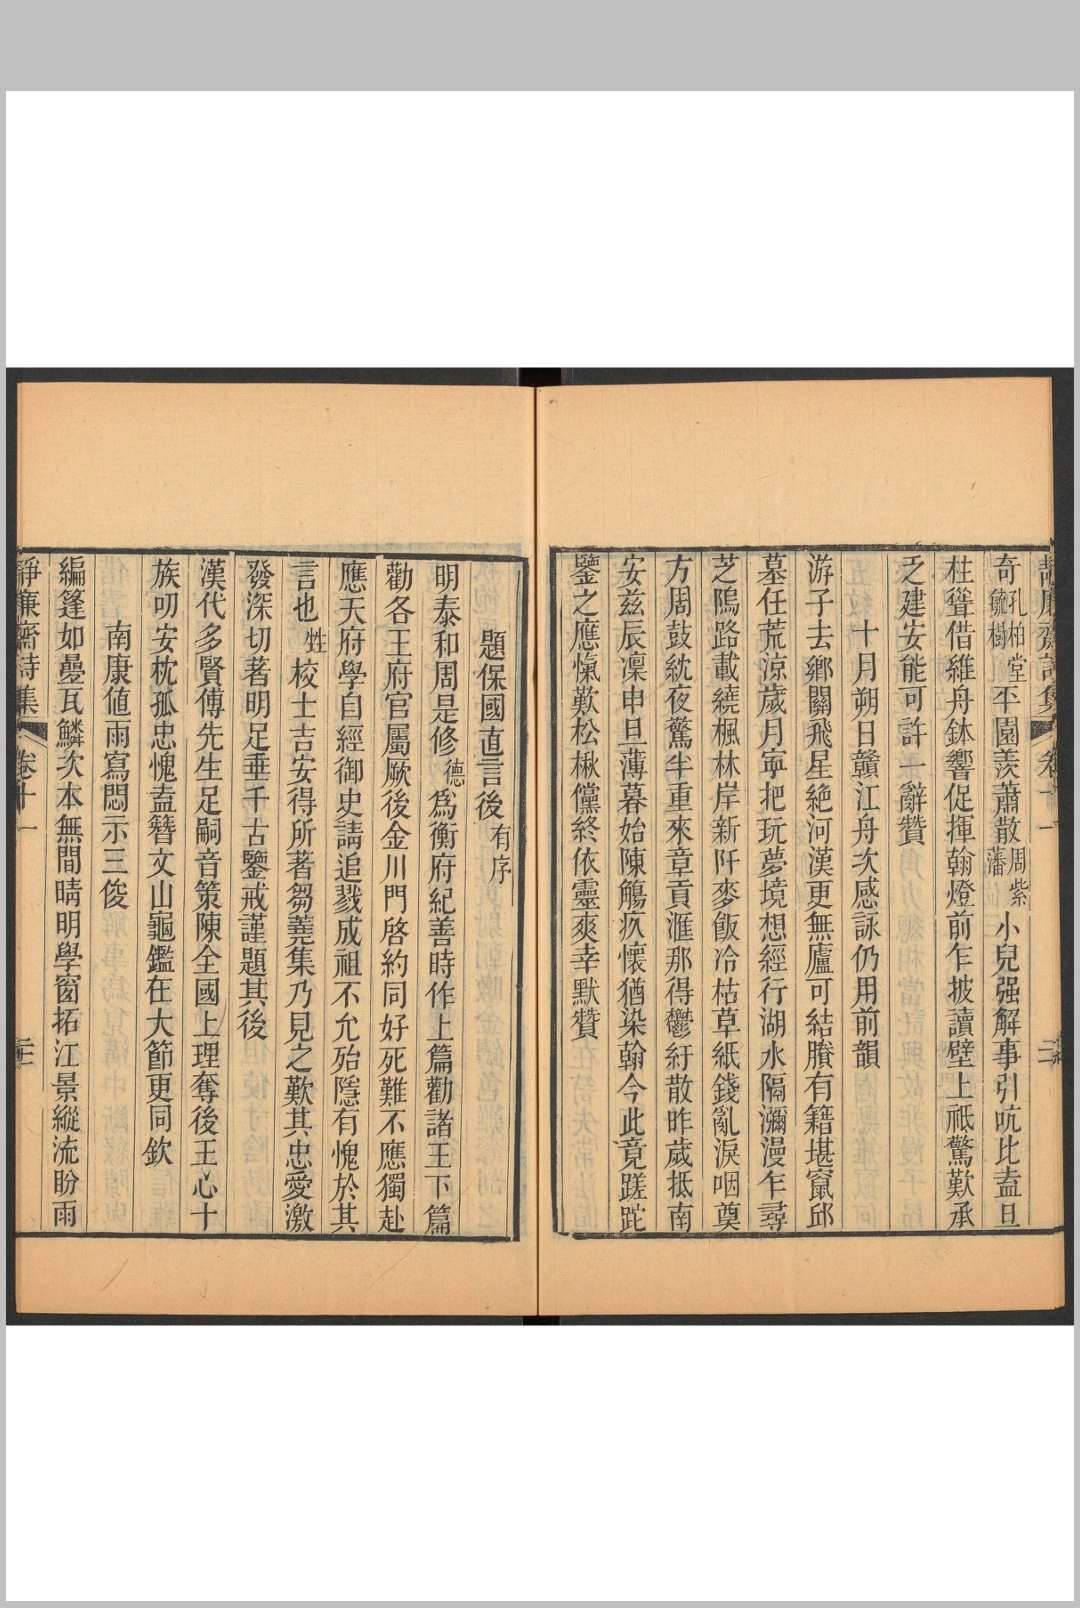 靜廉齋詩集 卷十一
奇孔柏堂毓樹丕園羨蕭散周紫藩小兒强解事引吭比盍旦
枉聳借維舟鉢響促揮翰燈前乍披讀壁上祇驚歎承
乏建安能可許一辭贊
十月朔日贛江舟次感詠仍用前韻
游子去鄉關飛星絶河漢更無廬可結賸有籍堪竄邱
墓任荒涼歲月寧把玩夢境想經行湖水隔瀰漫乍尋
芝隝路載繞楓林岸新阡麥飯冷枯草紙錢亂淚咽奠
方周鼓紞夜驚半重來章貢滙那得鬱紆散昨歲抵南
安兹辰凜申旦薄暮始陳觴疚懷猶染翰今此竟蹉跎
鑒之應愾歎松楸儻終依靈爽幸默贊
題保國直言後有序
明泰和周是修德爲衡府紀善時作上篇勸諸王下篇
勸各王府官屬厥後金川門啓約同好死難不應獨赴
應天府學自經御史請追戮成祖不允殆隱有愧於其
言也甡校士吉安得所著芻蕘集乃見之歎其忠愛激
發深切著明足垂千古鑒戒謹題其後
漢代多賢傅先生足嗣音策陳全國上理奪後王心十
族叨安枕孤忠愧盍簪文山龜鑑在大節更同欽
南康値雨寫悶示三俊
編篷如疉瓦鱗次本無間晴明學窗拓江景縱流盼雨
靜廉齋詩集 卷十一